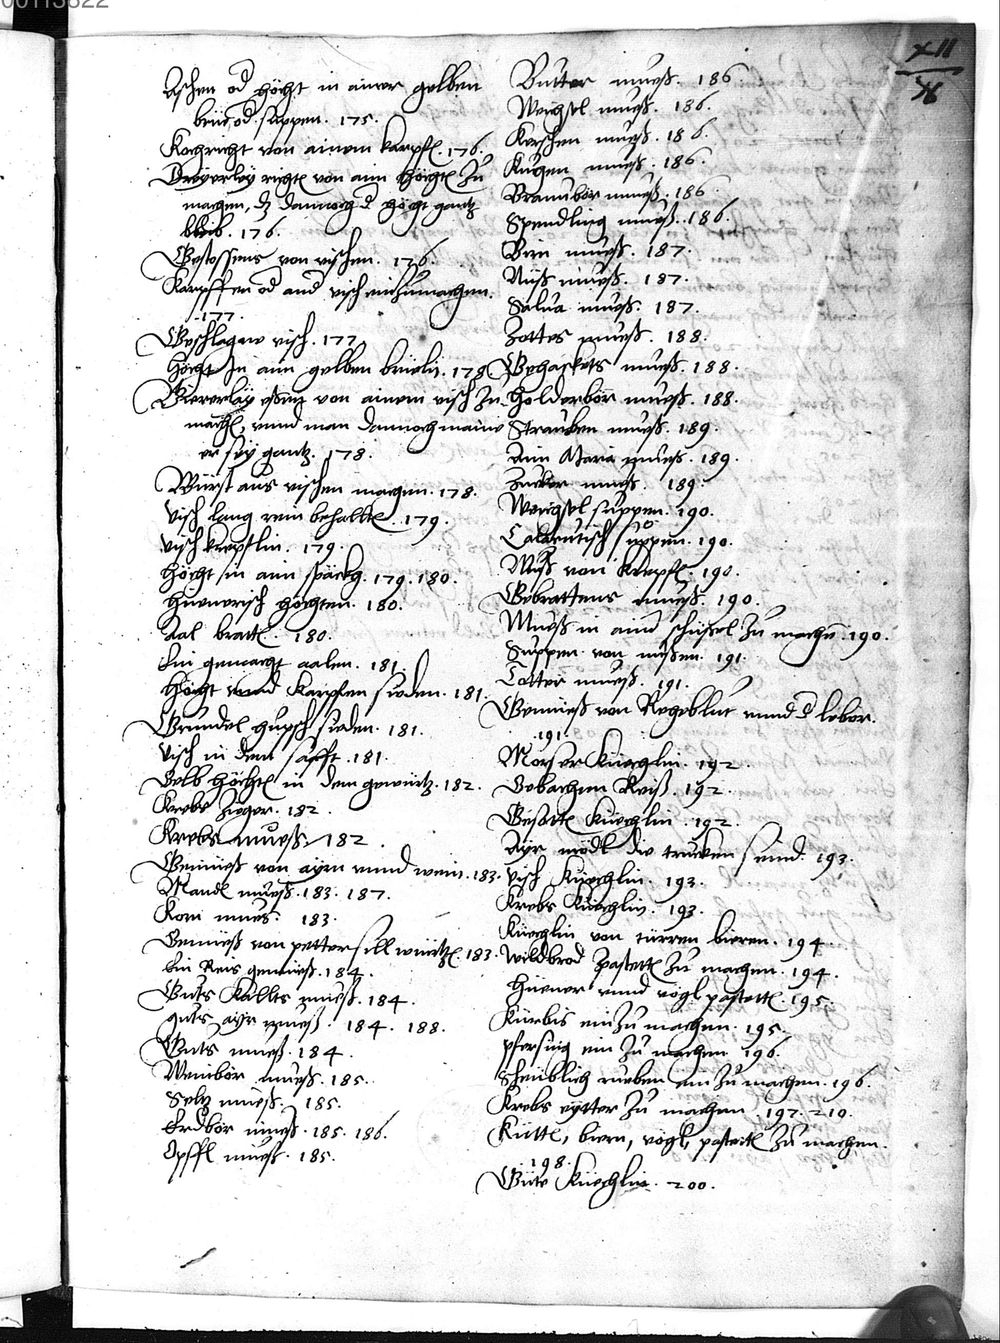 00113822
XII
Aschen od höcht in ainer gelben
brüe od suppen. 175.
Kochrecht von ainem karpfl. 176.
Dreyerley richtl von aim höchtl zu
machen, dz dannocht d höcht gantz
bleib. 176.
Gestossens von vischen. 176.
Karpffen od and visch einzumachen.
177.
Geschlagne visch. 177.
höcht In aim gelben brüelin. 178
Viererlay essen von ainem visch zu
machen, vnnd man dannocht maine
er sey gantz. 178.
Würst aus vischen machen. 178.
Visch lang rein behaltten. 179.
Visch krepflin. 179.
höcht in aim späckh. 179. 180.
hunerisch höchten. 180.
Aal bratten. 180.
Ein gemacht aalen. 181.
höcht vnnd Karpffen sieden. 181.
Grundel hupsch sieden. 181.
Visch in dem safft. 181.
Gelb höchtl in dem gewürtz. 182.
Krebs zieger. 182.
Krebs mueß. 182.
Gemüeß von ayrn vnnd wein. 183.
Mandl mueß. 183. 187.
Korn mues. 183.
Gemüeß von pettersill wurtzl. 183.
Ein Reis gemüeß. 184.
Guts kaltts mueß. 184.
guts ayr mueß. 184. 188.
Guts mueß. 184.
Weinbör mueß. 185.
Seltz mueß. 185.
Erdbör mueß. 185. 186.
Opffl mueß. 185.
Butter mueß. 186
Weichsel mueß. 186.
Kerschen mueß. 186.
Kugen mueß. 186.
Braunbör mueß. 186.
Spendling mueß. 186.
Birn mueß. 187.
Nuß mueß. 187.
Salua mueß. 187.
Zottes mueß. 188.
Gehackts mueß. 188.
Holderbör mueß. 188.
Strauben mueß. 189.
Ann Maria mueß. 189.
Zucker mueß. 189.
Weichsel suppen. 190.
suppen. 190.
Mueß von krepfl. 190.
Gebrattens mueß. 190.
Mueß in ainer schüssel zu machen. 190.
Suppen von nussen. 191.
Totter mueß. 191.
Gemüeß von Rechblut vnnd d leber.
191.
Morser küechlin. 192
Gebachen Reiß. 192
küechlin. 192.
Ayr nödl die trucken seind. 193.
Visch küechlin. 193.
Krebs küechlin. 193.
Küechlin von türren bieren. 194.
Wildbred pastetl zu machen. 194.
Hüener vnnd vögl pastetl. 195.
Kürbis einzumachen. 195.
Pfersing ein zu machen. 196.
Scheublich rueben ein zu machen. 196.
Krebs eytter zu machen. 197. 210.
Kütten, biern, vögl, pastetl zu machen.
198.
Gute küechlin. 200.